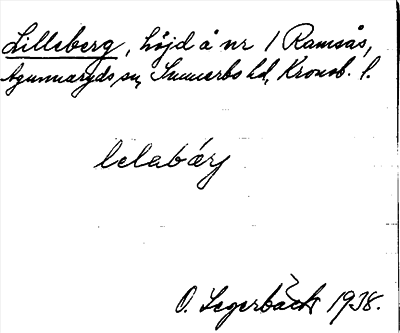 Lilleberg, höjd å nr 1 Ramsås,
Agunnaryds sn, Sunnerbo hd, Kronob. l.
lelabärj
O. Segerbäck 1938.